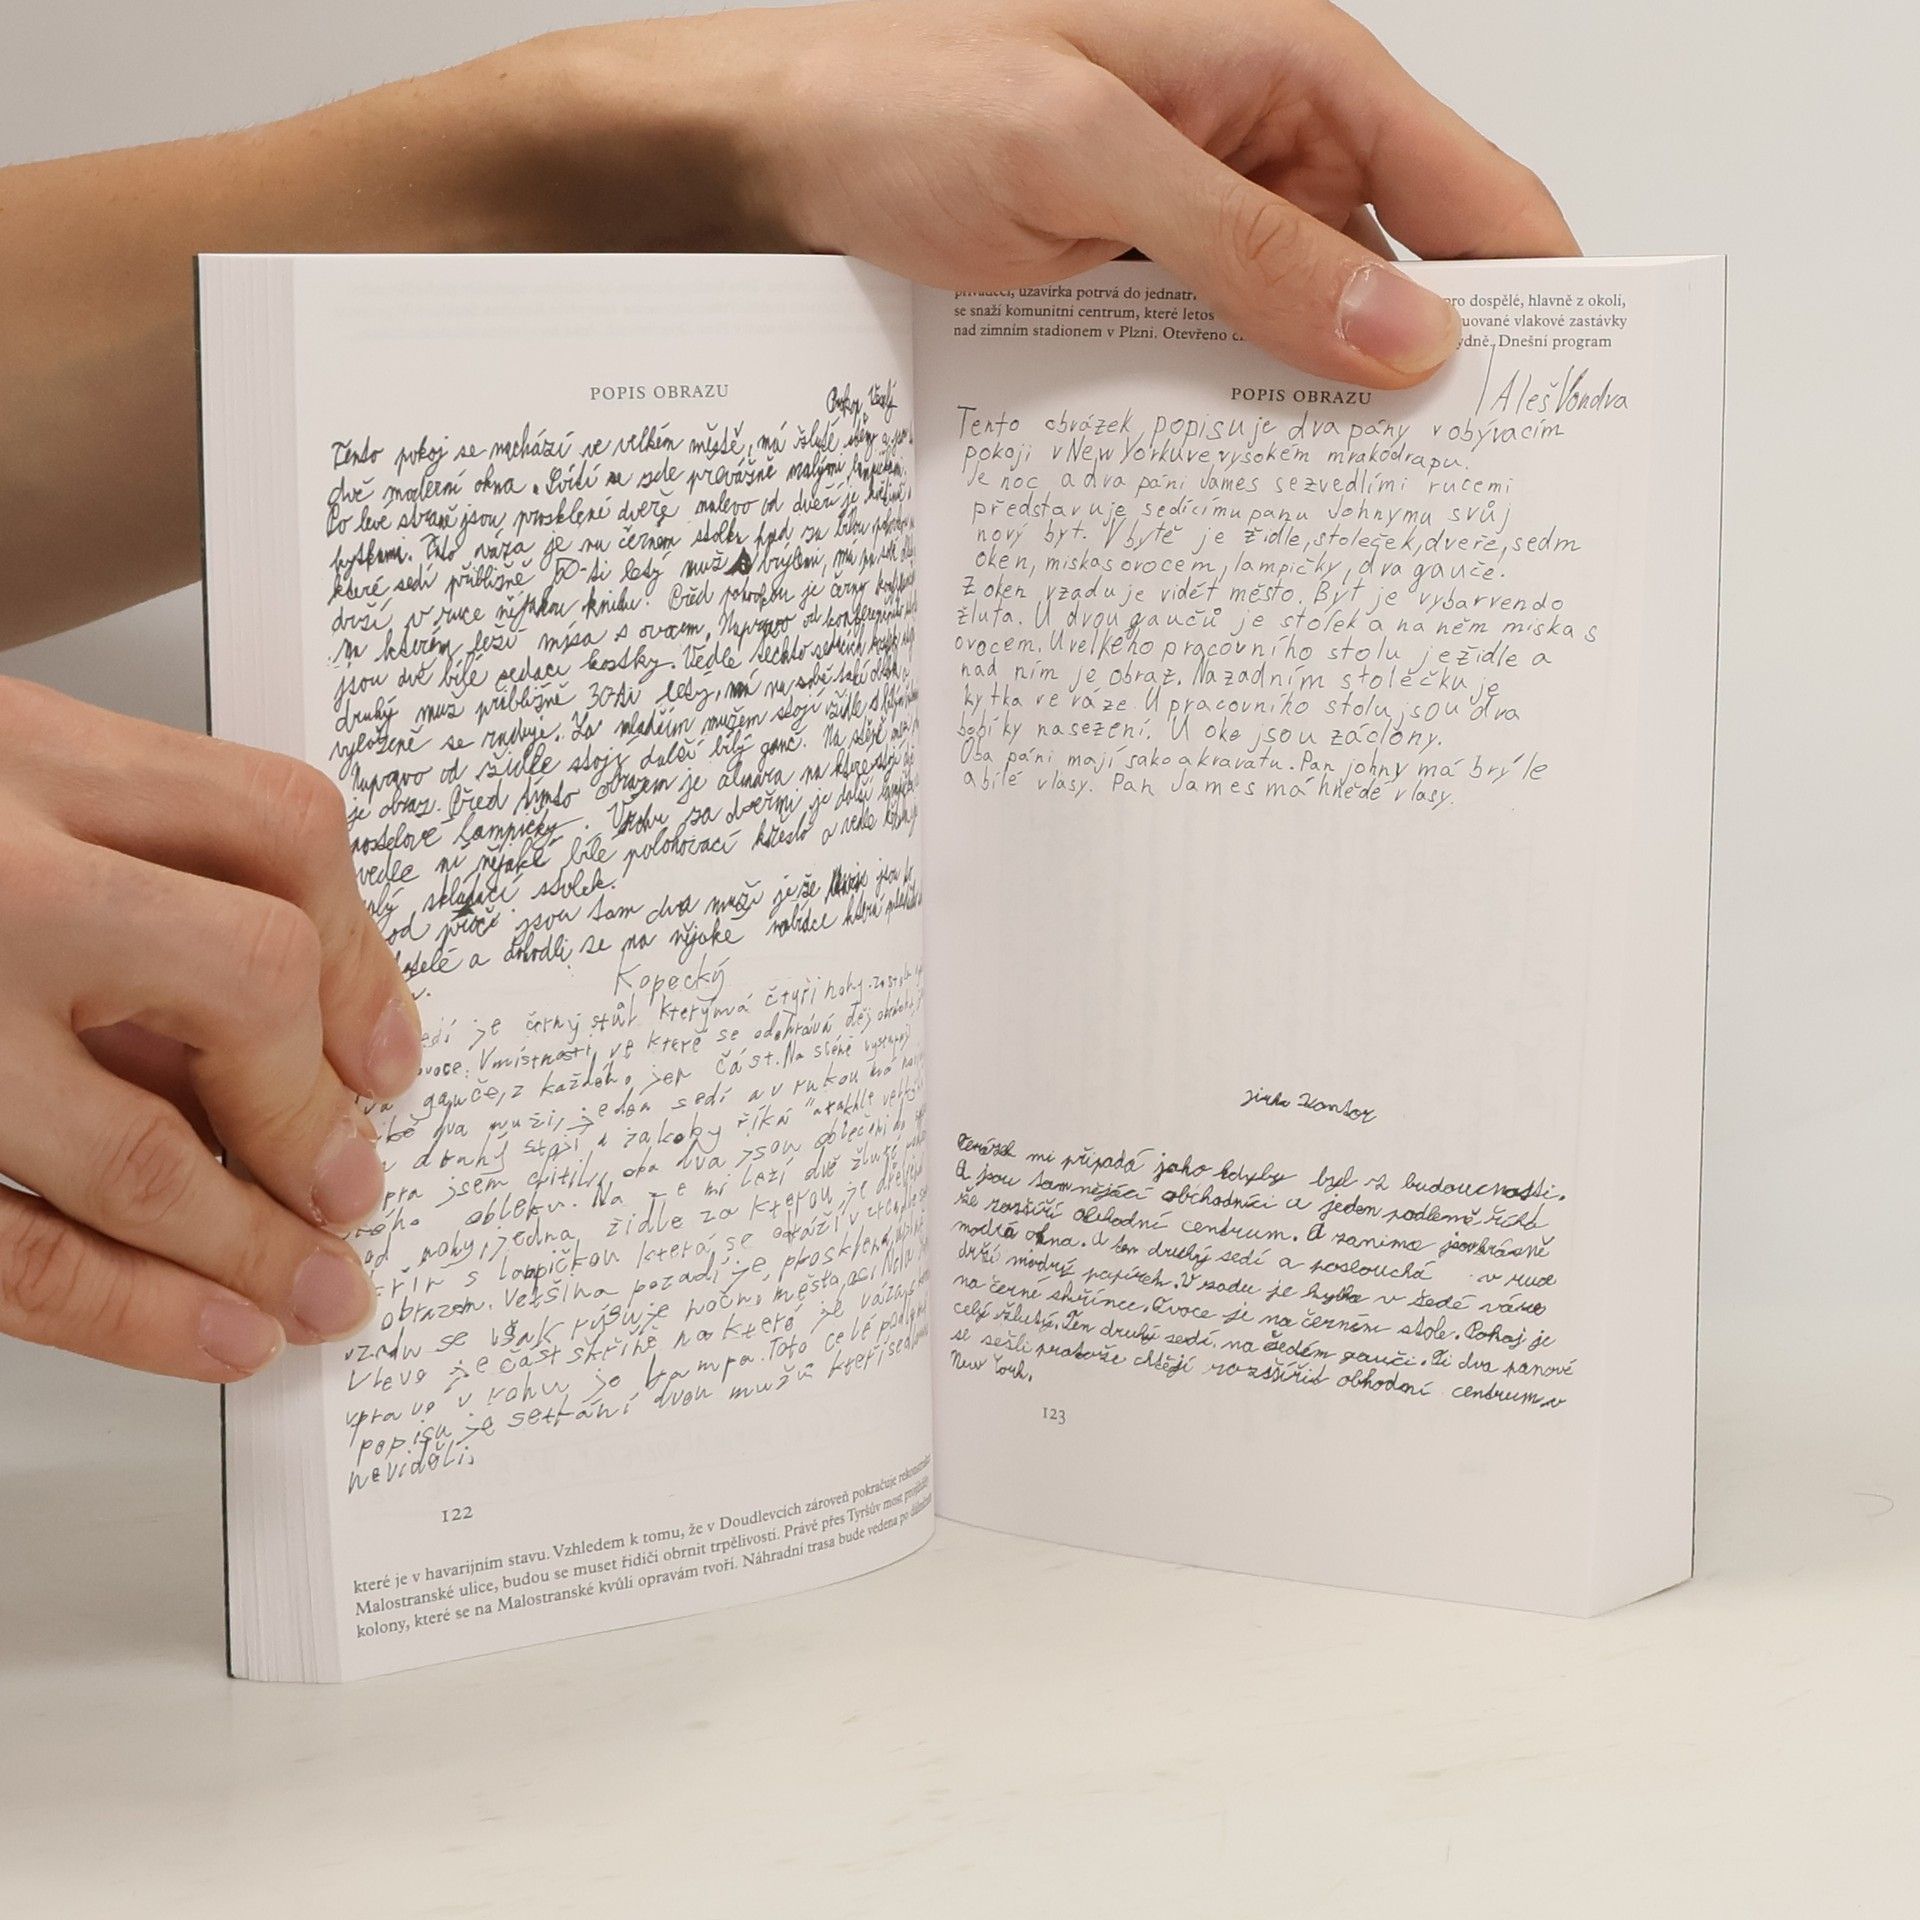 POPIS OBRAZU
Tento pokoj se nachází ve velkém městě, má žluté stěny a
dvě moderní okna. Svítí se zde převážně malými lampičkami.
Po levé straně jsou prosklené dveře nalevo od dveří je
kytkami. Tato váza je na černém stolku hned za bílou
které sedí přibližně 50-ti letý muž s brýlemi, má na sobě
drží v ruce nějakou knihu. Před pohovkou je černý
na kterém leží mísa s ovocem. Napravo od
jsou dvě bílé sedací kostky. Vedle těchto sedacích
druhý muž přibližně 30ti letý, má na sobě také
vyloženě se raduje. Za mladším mužem stojí židle s
Napravo od židle stojí další bílý gauč. Na stěně
je obraz. Před tímto obrazem je almara na které stojí
lampičky. Vzadu za dveřmi je další
vedle ní nějaké bílé polohovací křeslo a vedle
skládací stolek.
od proč jsou tam dva muži je že jsou to
a dohodli se na nějaké nabídce která
Kopecký
je černý stůl který má čtyři nohy. za stolem
V místnosti ve které se odehrává děj obrázku
gauče, z každého jen část. Na scéně vystupují
dva muži, jeden sedí a v rukou má
druhý stojí a jakoby říká "takhle
jsem chytil, oba dva jsou oblečeni do
obleku. Na zemi leží dvě žluté
nohy, jedna židle za kterou je
s lampičkou která se odráží v
obrazem. Většina pozadí je prosklená,
vzadu se však rýsuje noční město,
Vlevo je část skříně na které je váza s
vpravo v rohu je lampa. Toto celé podle
popisu je setkání dvou mužů kteří se
neviděli.
122
které je v havarijním stavu. Vzhledem k tomu, že v Doudlevcích zároveň pokračuje rekonstrukce
Malostranské ulice, budou se muset řidiči obrnit trpělivostí. Právě přes Tyršův most projížděly
kolony, které se na Malostranské kvůli opravám tvoří. Náhradní trasa bude vedena po dálničním
uzavírka potrvá do pro dospělé, hlavně z okolí,
se snaží komunitní centrum, které letos vlakové zastávky
nad zimním stadionem v Plzni. Otevřeno Dnešní program
POPIS OBRAZU
Aleš Vondra
Tento obrázek popisuje dva pány v obývacím
pokoji v New Yorku ve vysokém mrakodrapu.
Je noc a dva páni James se zvedlími rucemi
představuje sedícímu panu Johnymu svůj
nový byt. V bytě je židle, stoleček, dveře, sedm
oken, miska s ovocem, lampičky, dva gauče.
Z oken vzadu je vidět město. Byt je vybarven do
žluta. U dvou gaučů je stolek a na něm miska s
ovocem. U velkého pracovního stolu je židle a
nad ním je obraz. Na zadním stolečku je
kytka ve váze. U pracovního stolu jsou dva
bobíky na sezení. U oke jsou záclony.
Oba páni mají sako a kravatu. Pan johny má brýle
a bílé vlasy. Pan James má hnědé vlasy.
jirka Kantor
mi připadá jako kdyby byl z budoucnosti.
A jsou tam nějácí obchodníci a jeden podlemě říká
že rozšíří obchodní centrum. A zanima jsou krásně
modrá okna. A ten druhý sedí a poslouchá v ruce
drží modrý papírek. V zadu je kytka v šedé váze
na černé skřínce. Ovoce je na černém stole. Pokoj je
celý žlutý. Ten druhý sedí na šedém gauči. Ti dva panové
se sešli protože chtějí rozšířit obhodní centrum v
New York.
123